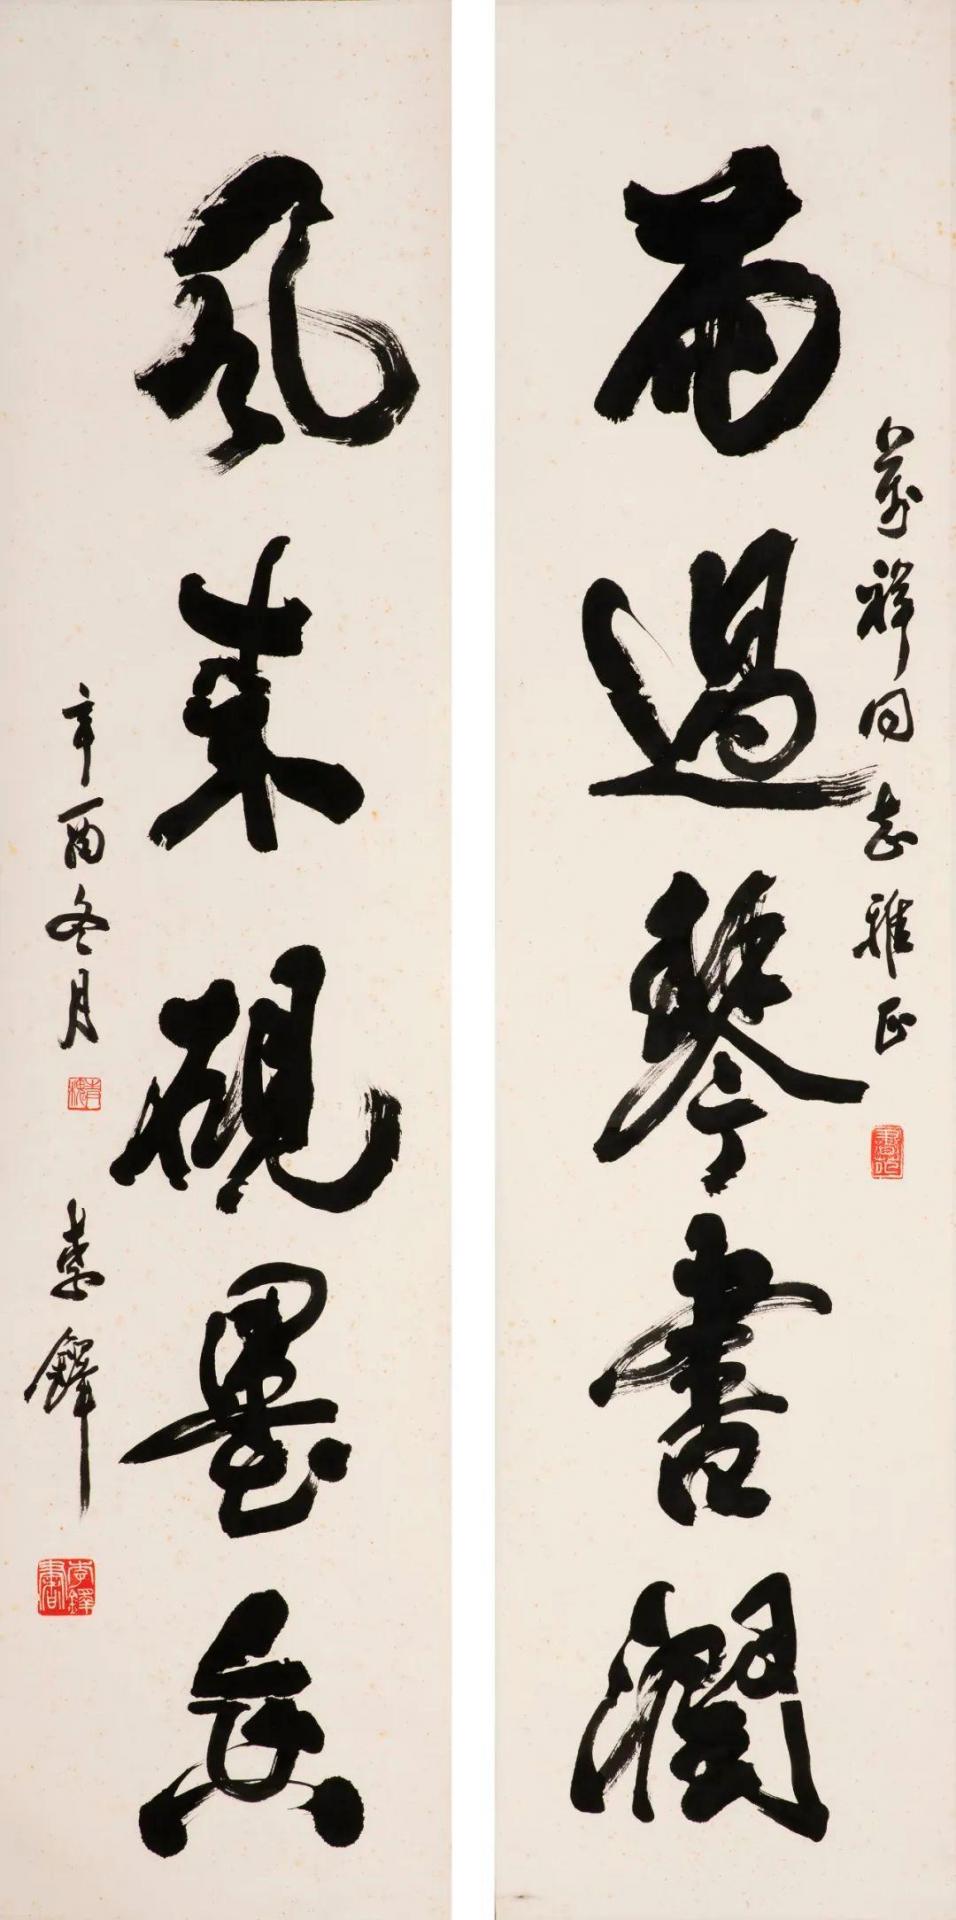 萬祥同志雅正
雨過琴書潤
風来硯墨香
辛酉冬月
李鐸
李鐸書